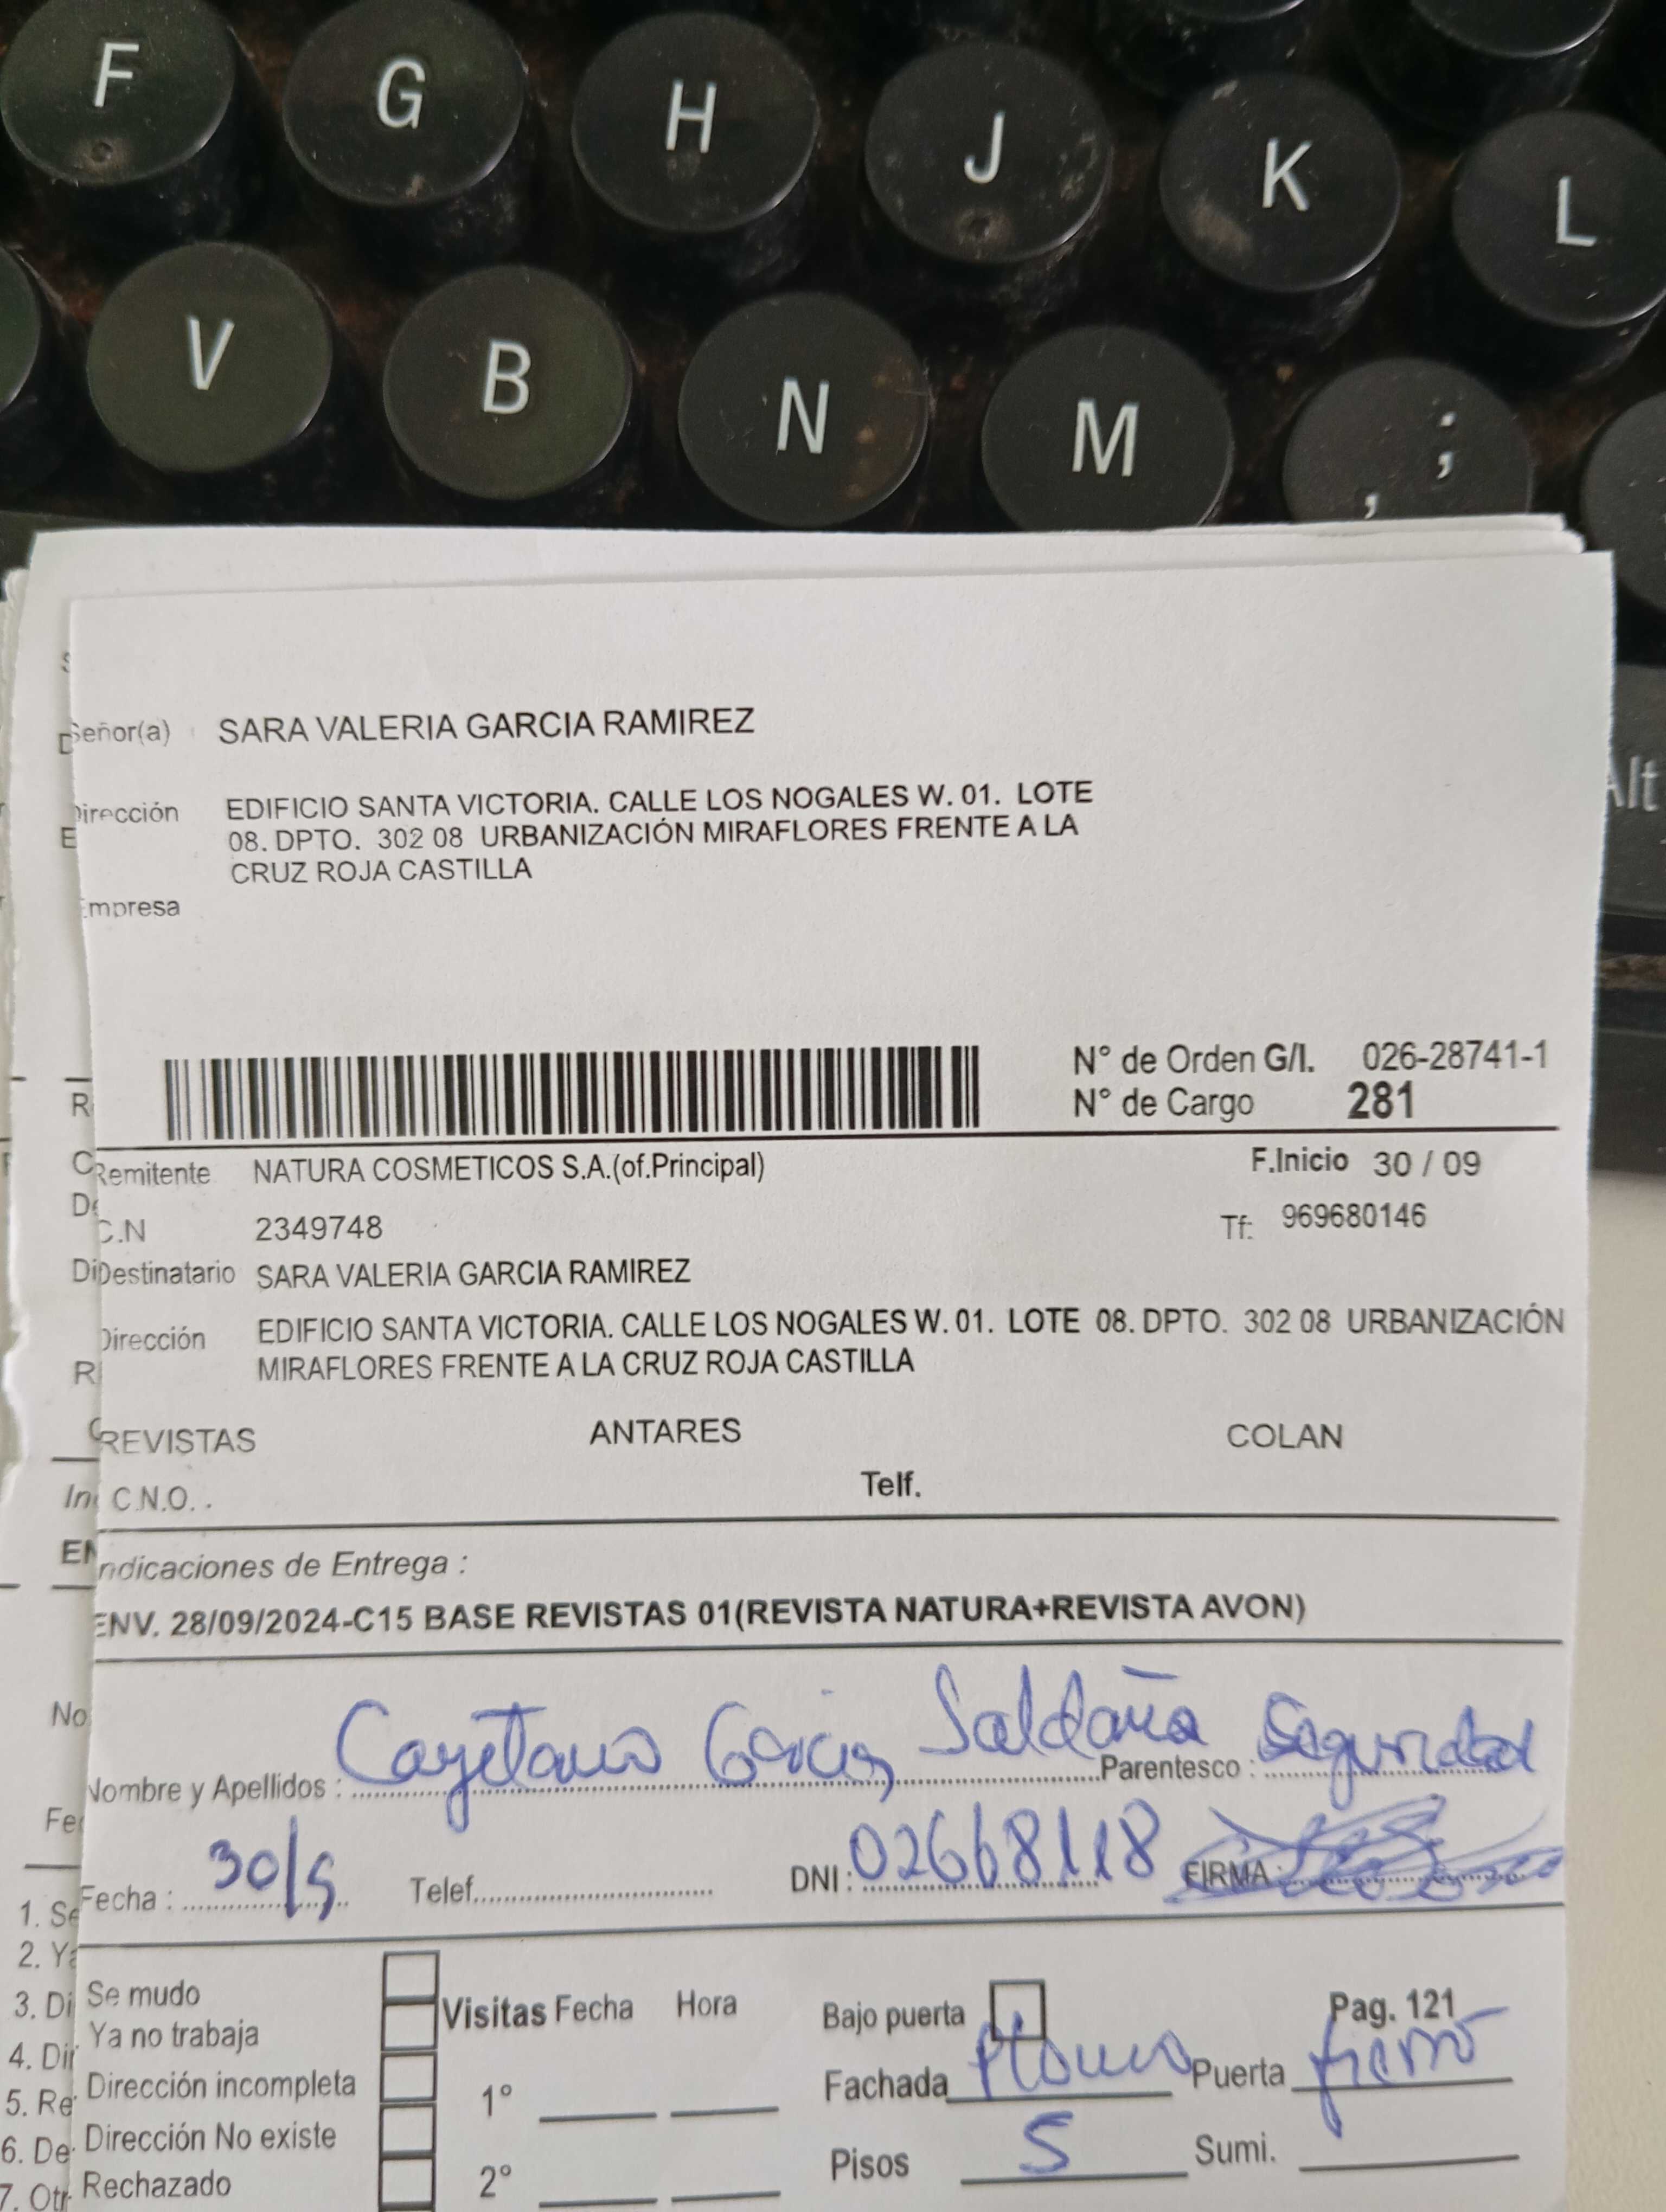 F G H J K L
V B N M , ;
Alt
Señor(a) SARA VALERIA GARCIA RAMIREZ
Dirección EDIFICIO SANTA VICTORIA. CALLE LOS NOGALES W. 01. LOTE
08. DPTO. 302 08 URBANIZACIÓN MIRAFLORES FRENTE A LA
CRUZ ROJA CASTILLA
Empresa
N° de Orden G/I. 026-28741-1
N° de Cargo 281
Remitente NATURA COSMETICOS S.A.(of.Principal) F.Inicio 30 / 09
C.N 2349748 Tf: 969680146
Destinatario SARA VALERIA GARCIA RAMIREZ
Dirección EDIFICIO SANTA VICTORIA. CALLE LOS NOGALES W. 01. LOTE 08. DPTO. 302 08 URBANIZACIÓN
MIRAFLORES FRENTE A LA CRUZ ROJA CASTILLA
REVISTAS ANTARES COLAN
Telf.
C.N.O. .
ndicaciones de Entrega :
ENV. 28/09/2024-C15 BASE REVISTAS 01(REVISTA NATURA+REVISTA AVON)
Nombre y Apellidos : Cayetano Garcia Saldaña Parentesco : Seguridad
Fecha : 30/9 Telef. DNI : 02668118 FIRMA :
Se mudo
Ya no trabaja
Dirección incompleta
Dirección No existe
Rechazado
Visitas Fecha Hora
1°
2°
Bajo puerta Pag. 121
Fachada plomo Puerta fierro
Pisos 5 Sumi.
1. Se
2. Ya
3. Di
4. Dir
5. Re
6. De
7. Otr